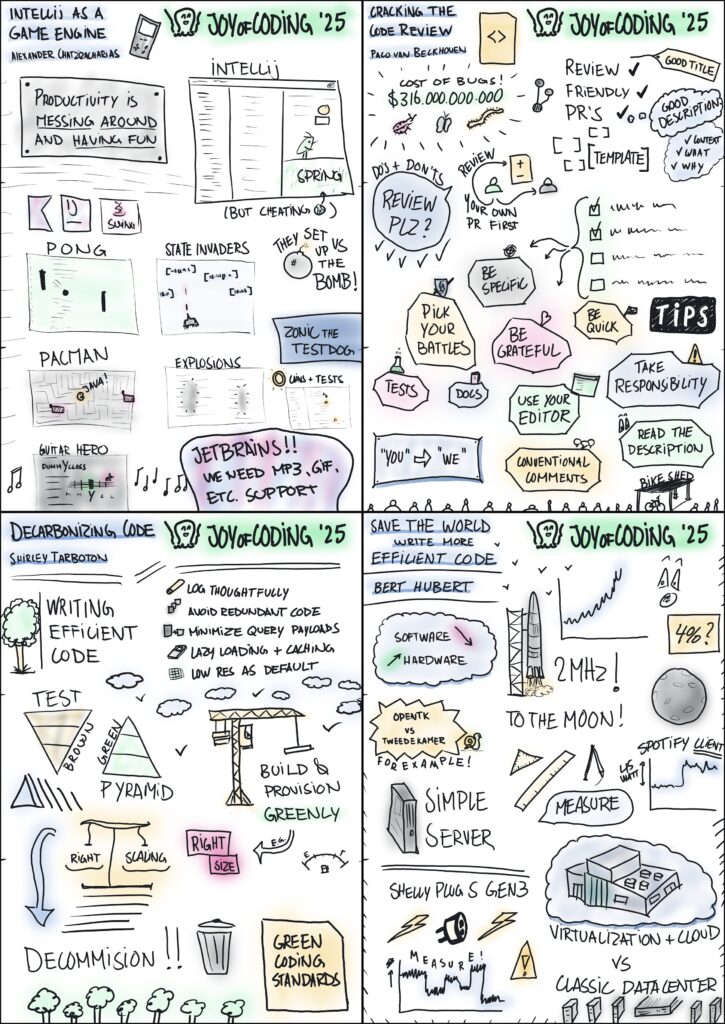 INTELLIJ AS A
GAME ENGINE
ALEXANDER CHATZIZACHARIAS
JOY OF CODING '25
PRODUCTIVITY IS
MESSING AROUND
AND HAVING FUN
INTELLIJ
SPRING
(BUT CHEATING)
IJ
SWING
PONG
STATE INVADERS
THEY SET
UP VS
THE
BOMB!
ZONIC THE
TESTDOG
PACMAN
JAVA!
EXPLOSIONS
COINS + TESTS
GUITAR HERO
DUMMYCLASS
JETBRAINS!!
WE NEED MP3, GIF,
ETC. SUPPORT
CRACKING THE
CODE REVIEW
PACO VAN BECKHOVEN
<>
JOY OF CODING '25
COST OF BUGS!
$316.000.000.000
REVIEW
FRIENDLY
PR'S
GOOD TITLE
GOOD
DESCRIPTION
[TEMPLATE]
CONTEXT
WHAT
WHY
DO'S + DON'TS
REVIEW
PLZ?
REVIEW
YOUR OWN
PR FIRST
BE
SPECIFIC
PICK
YOUR
BATTLES
BE
GRATEFUL
BE
QUICK
TIPS
TESTS
DOCS
USE YOUR
EDITOR
TAKE
RESPONSIBILITY
READ THE
DESCRIPTION
"YOU" → "WE"
CONVENTIONAL
COMMENTS
BIKE SHED
DECARBONIZING CODE
SHIRLEY TARBOTON
JOY OF CODING '25
WRITING
EFFICIENT
CODE
LOG THOUGHTFULLY
AVOID REDUNDANT CODE
MINIMIZE QUERY PAYLOADS
LAZY LOADING + CACHING
LOW RES AS DEFAULT
TEST
BROWN
GREEN
PYRAMID
BUILD &
PROVISION
GREENLY
RIGHT SCALING
RIGHT
SIZE
E.G.
E F
DECOMMISION !!
GREEN
CODING
STANDARDS
SAVE THE WORLD
WRITE MORE
EFFICIENT CODE
BERT HUBERT
JOY OF CODING '25
SOFTWARE
HARDWARE
2MHz!
TO THE MOON!
4%?
OPENTK
VS
TWEEDEKAMER
FOR EXAMPLE!
SIMPLE
SERVER
MEASURE
SPOTIFY CLIENT
WATT
SHELLY PLUG S GEN3
MEASURE!
VIRTUALIZATION + CLOUD
VS
CLASSIC DATACENTER